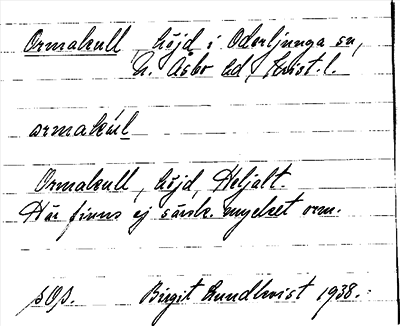 Ormakull, höjd i Oderljunga sn,
N. Åsbo hd, Krist. l.
ormakúl
Ormakull, höjd, Heljalt.
Här finns ej särsk. mycket orm.
sOs. Birgit Lundkvist 1938.